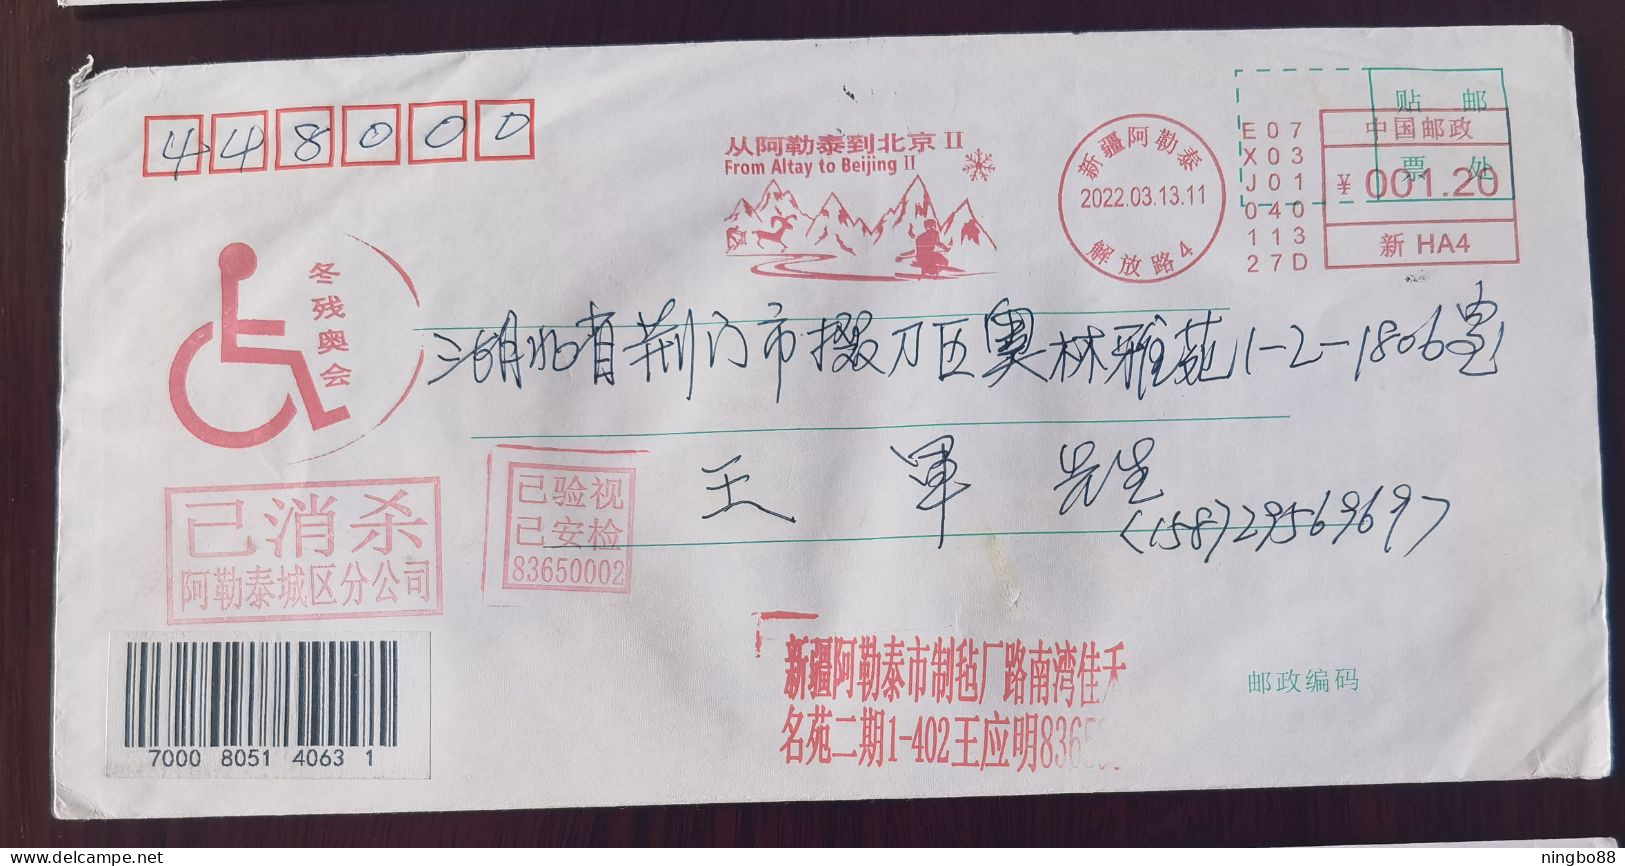 448000
从阿勒泰到北京II
From Altay to Beijing II
新疆阿勒泰
2022.03.13.11
解放路4
E07
X03
J01
040
113
27D
贴 邮
票 处
中国邮政
¥ 001.20
新 HA4
冬残奥会
湖北省荆门市掇刀区奥林雅苑1-2-1806室
王 军 先生
(158729569697)
已消杀
阿勒泰城区分公司
已验视
已安检
83650002
7000 8051 4063 1
新疆阿勒泰市制毡厂路南湾佳禾
名苑二期1-402王应明836
邮政编码
ningbo88